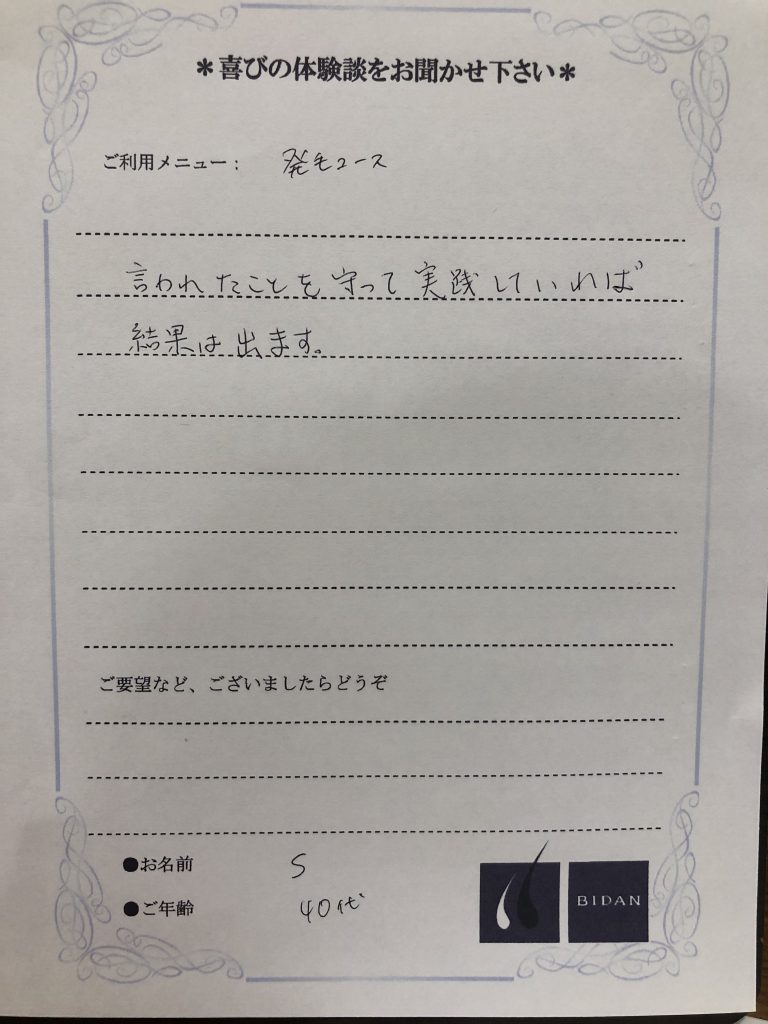 ＊喜びの体験談をお聞かせ下さい＊
ご利用メニュー： 発毛コース
言われたことを守って実践していれば
結果は出ます。
ご要望など、ございましたらどうぞ
●お名前 S
●ご年齢 40代
BIDAN